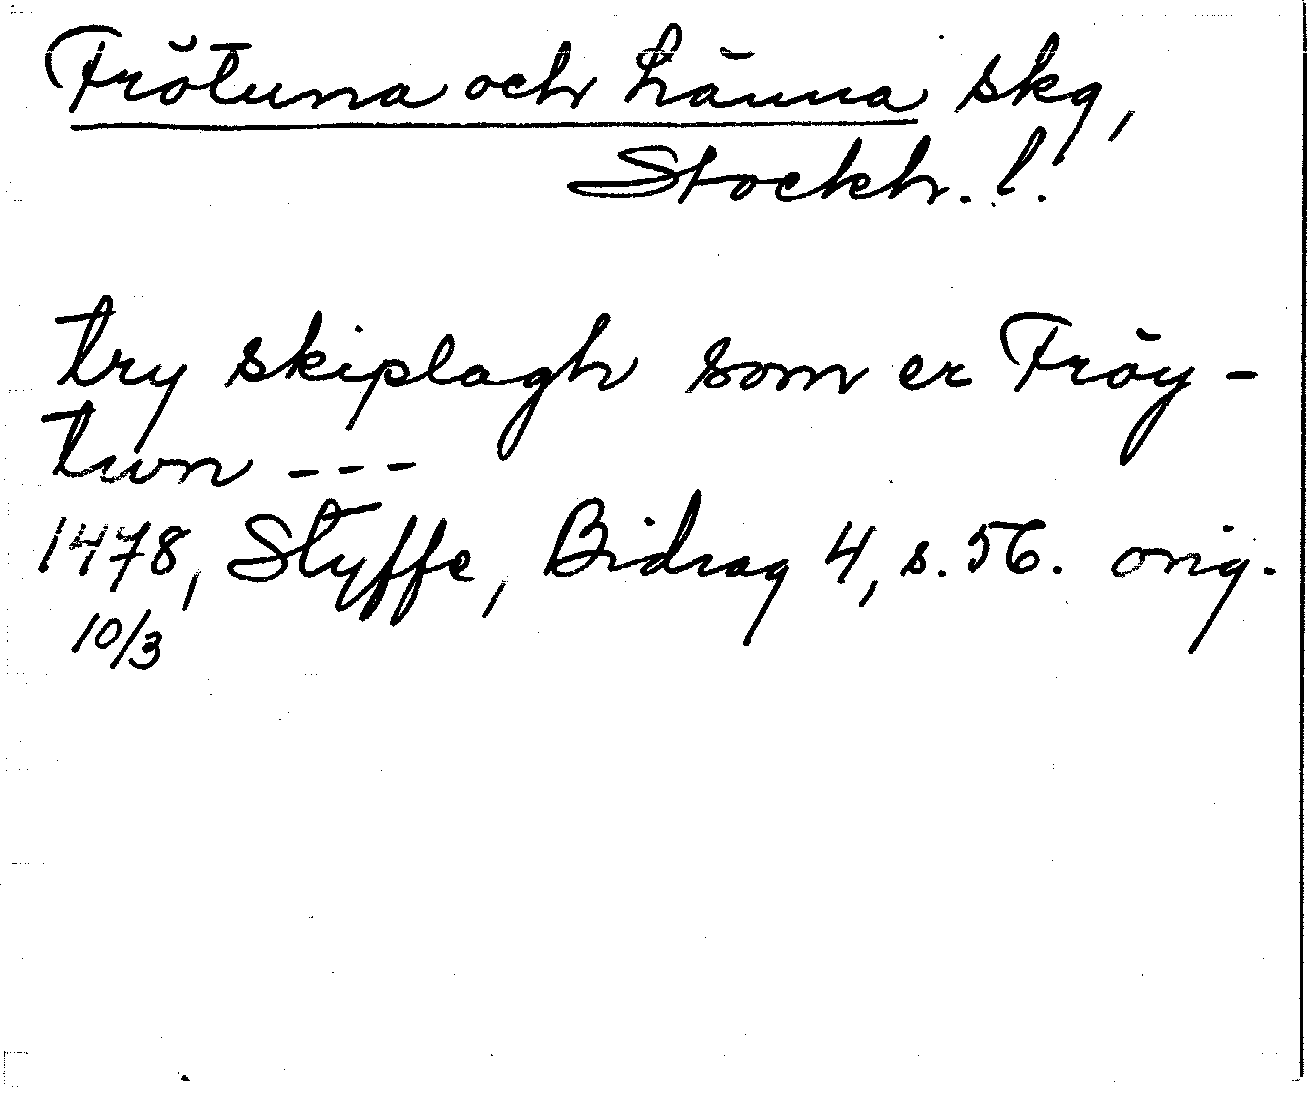 Frötuna och Länna skg,
Stockh. l.
try skiplagh som er Fröy-
twn ---
1478, Styffe, Bidrag 4, s. 56. orig.
10/3